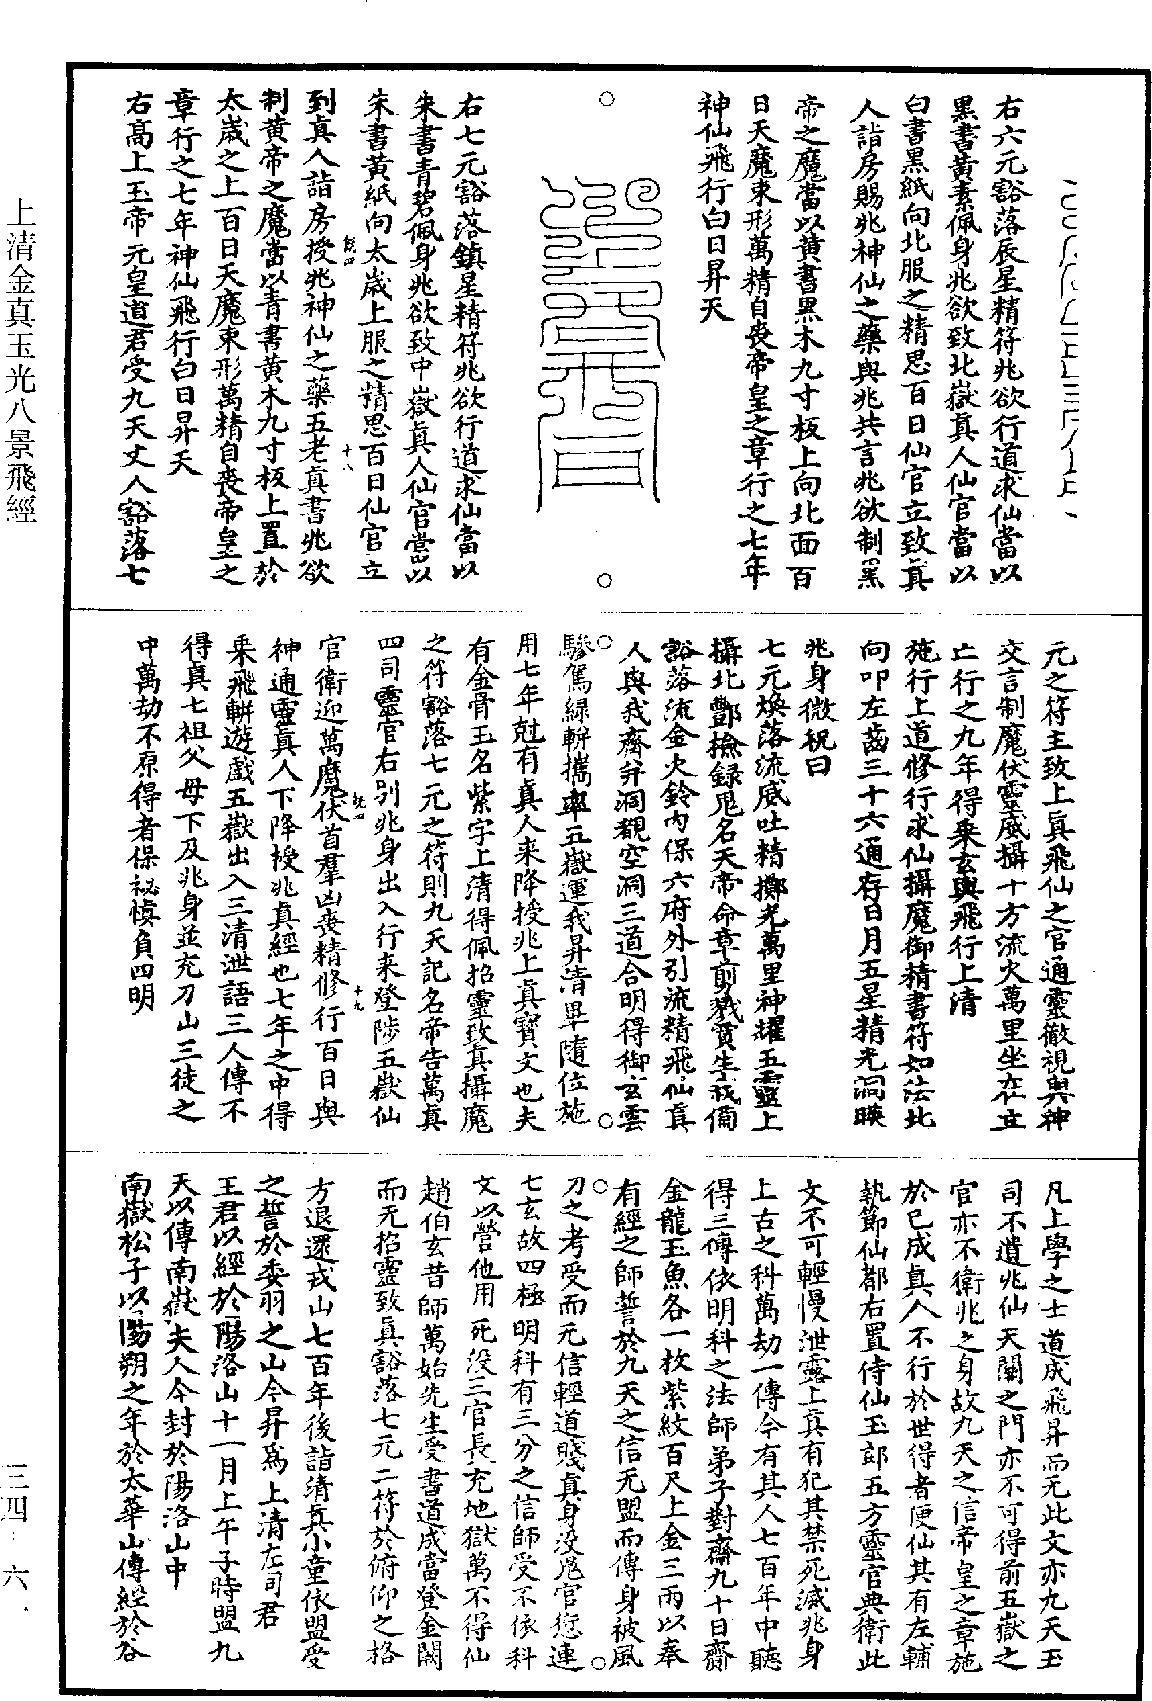 右六元豁落辰星精符兆欲行道求仙當以
黑書黃素佩身兆欲致北嶽真人仙官當以
白書黑紙向北服之精思百日仙官立致真
人詣房賜兆神仙之藥與兆共言兆欲制黑
帝之魔當以黃書黑木九寸板上向北面百
日天魔束形萬精自喪帝皇之章行之七年
神仙飛行白日昇天
右七元豁落鎮星精符兆欲行道求仙當以
朱書青碧佩身兆欲致中嶽真人仙官當以
朱書黃紙向太歲上服之精思百日仙官立
到真人詣房授兆神仙之藥五老真書兆欲
制黃帝之魔當以青書黃木九寸板上置於
太歲之上百日天魔束形萬精自喪帝皇之
章行之七年神仙飛行白日昇天
右高上玉帝元皇道君受九天丈人豁落七
元之符主致上真飛仙之官通靈徹視與神
交言制魔伏靈威攝十方流火萬里坐在立
亡行之九年得乘玄輿飛行上清
施行上道修行求仙攝魔御精書符如法北
向叩左齒三十六通存日月五星精光洞暎
兆身微祝曰
七元煥落流威吐精擲光萬里神燿五靈上
攝北酆撿録鬼名天帝命章剪戮賓生我備
豁落流金火鈴內保六府外引流精飛仙真
人與我齊并洞觀空洞三道合明得御玄雲
驂駕緑軿攜率五嶽運我昇清畢隨位施
用七年尅有真人來降授兆上真寶文也夫
有金骨玉名紫字上清得佩招靈致真攝魔
之符豁落七元之符則九天記名帝告萬真
四司靈官右別兆身出入行来登陟五嶽仙
官衛迎萬魔伏首羣凶喪精修行百日與
神通靈真人下降授兆真經也七年之中得
乘飛軿遊戲五嶽出入三清泄語三人傳不
得真七祖父母下及兆身並充刀山三徒之
中萬劫不原得者保祕慎負四明
凡上學之士道成飛昇而无此文亦九天玉
司不遣兆仙天關之門亦不可得前五嶽之
官亦不衛兆之身故九天之信帝皇之章施
於已成真人不行於世得者便仙其有左輔
執節仙都右置侍仙玉郎五方靈官典衛此
文不可輕慢泄露上真有犯其禁死滅兆身
上古之科萬劫一傳今有其人七百年中聽
得三傳依明科之法師弟子對齋九十日齎
金龍玉魚各一枚紫紋百尺上金三兩以奉
有經之師誓於九天之信无盟而傳身被風
刀之考受而无信輕道賤真身没鬼官𠎝連
七玄故四極明科有三分之信師受不依科
文以營他用死没三官長充地獄萬不得仙
趙伯玄昔師萬始先生受書道成當登金闕
而无招靈致真豁落七元二符於俯仰之格
方退還戎山七百年後詣清真小童依盟受
之誓於委羽之山今昇為上清左司君
王君以經於陽洛山十一月上午子時盟九
天以傳南嶽夫人今封於陽洛山中
南嶽松子以陽朔之年於太華山傳經於谷
上清金真玉光八景飛經
三四·六